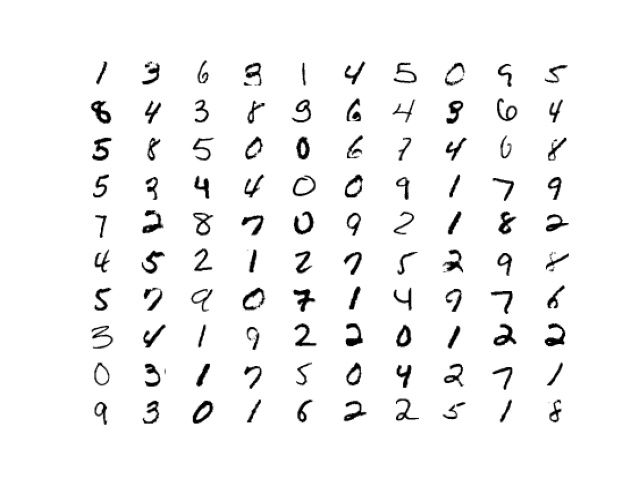 1 3 6 3 1 4 5 0 9 5
8 4 3 8 9 6 4 9 6 4
5 8 5 0 0 6 7 4 0 8
5 3 4 4 0 0 9 1 7 9
7 2 8 7 0 9 2 1 8 2
4 5 2 1 2 7 5 2 9 8
5 7 9 0 7 1 4 9 7 6
3 4 1 9 2 2 0 1 2 2
0 3 1 7 5 0 4 2 7 1
9 3 0 1 6 2 2 5 1 8